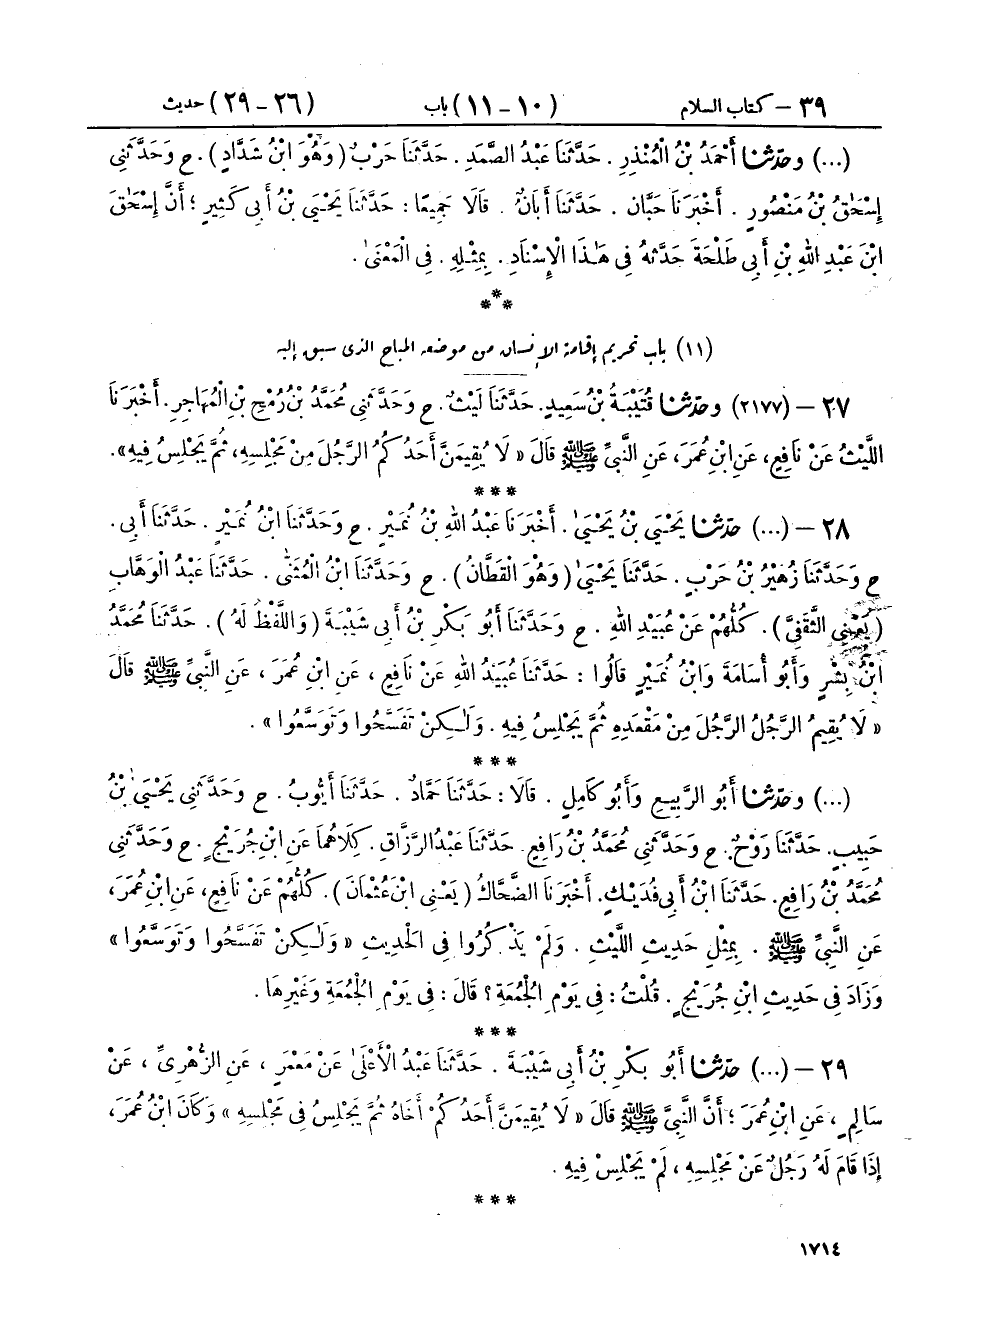 ٣٩ – كتاب السلام (١٠ – ١١) باب (٢٦ – ٢٩) حديث
(...) وحَدَّثَنَا أَحْمَدُ بْنُ الْمُنْذِرِ . حَدَّثَنَا عَبْدُ الصَّمَدِ . حَدَّثَنَا حَرْبٌ (وَهُوَ ابْنُ شَدَّادٍ) . ح وَحَدَّثَنِي
إِسْحَٰقُ بْنُ مَنْصُورٍ . أَخْبَرَنَا حَبَّانُ . حَدَّثَنَا أَبَانُ . قَالَا جَمِيعًا : حَدَّثَنَا يَحْيَىٰ بْنُ أَبِي كَثِيرٍ ؛ أَنَّ إِسْحَٰقَ
ابْنَ عَبْدِ اللهِ بْنِ أَبِي طَلْحَةَ حَدَّثَهُ فِي هَٰذَا الْإِسْنَادِ . بِمِثْلِهِ . فِي الْمَعْنَىٰ .
***
(١١) باب تحريم إقامة الإنسان من موضعه المباح الذى سبق إليه
٢٧ – (٢١٧٧) وحَدَّثَنَا قُتَيْبَةُ بْنُ سَعِيدٍ. حَدَّثَنَا لَيْثٌ. ح وَحَدَّثَنِي مُحَمَّدُ بْنُ رُمْحِ بْنِ الْمُهَاجِرِ. أَخْبَرَنَا
اللَّيْثُ عَنْ نَافِعٍ، عَنِ ابْنِ عُمَرَ، عَنِ النَّبِيِّ ﷺ قَالَ « لَا يُقِيمَنَّ أَحَدُكُمُ الرَّجُلَ مِنْ مَجْلِسِهِ، ثُمَّ يَجْلِسُ فِيهِ».
***
٢٨ – (...) حَدَّثَنَا يَحْيَىٰ بْنُ يَحْيَىٰ . أَخْبَرَنَا عَبْدُ اللهِ بْنُ نُمَيْرٍ . ح وَحَدَّثَنَا ابْنُ نُمَيْرٍ . حَدَّثَنَا أَبِي .
ح وَحَدَّثَنَا زُهَيْرُ بْنُ حَرْبٍ . حَدَّثَنَا يَحْيَىٰ (وَهُوَ الْقَطَّانُ) . ح وَحَدَّثَنَا ابْنُ الْمُثَنَّىٰ . حَدَّثَنَا عَبْدُ الْوَهَّابِ
(يَعْنِي الثَّقَفِيَّ) . كُلُّهُمْ عَنْ عُبَيْدِ اللهِ . ح وَحَدَّثَنَا أَبُو بَكْرِ بْنُ أَبِي شَيْبَةَ (وَاللَّفْظُ لَهُ) . حَدَّثَنَا مُحَمَّدُ
ابْنُ بِشْرٍ وَأَبُو أُسَامَةَ وَابْنُ نُمَيْرٍ قَالُوا : حَدَّثَنَا عُبَيْدُ اللهِ عَنْ نَافِعٍ ، عَنِ ابْنِ عُمَرَ ، عَنِ النَّبِيِّ ﷺ قَالَ
« لَا يُقِيمُ الرَّجُلُ الرَّجُلَ مِنْ مَقْعَدِهِ ثُمَّ يَجْلِسُ فِيهِ . وَلَٰكِنْ تَفَسَّحُوا وَتَوَسَّعُوا » .
***
(...) وحَدَّثَنَا أَبُو الرَّبِيعِ وَأَبُو كَامِلٍ . قَالَا : حَدَّثَنَا حَمَّادٌ . حَدَّثَنَا أَيُّوبُ . ح وَحَدَّثَنِي يَحْيَىٰ بْنُ
حَبِيبٍ. حَدَّثَنَا رَوْحٌ. ح وَحَدَّثَنِي مُحَمَّدُ بْنُ رَافِعٍ. حَدَّثَنَا عَبْدُ الرَّزَّاقِ. كِلَاهُمَا عَنِ ابْنِ جُرَيْجٍ. ح وَحَدَّثَنِي
مُحَمَّدُ بْنُ رَافِعٍ. حَدَّثَنَا ابْنُ أَبِي فُدَيْكٍ. أَخْبَرَنَا الضَّحَّاكُ (يَعْنِي ابْنَ عُثْمَانَ). كُلُّهُمْ عَنْ نَافِعٍ، عَنِ ابْنِ عُمَرَ،
عَنِ النَّبِيِّ ﷺ . بِمِثْلِ حَدِيثِ اللَّيْثِ . وَلَمْ يَذْكُرُوا فِي الْحَدِيثِ « وَلَٰكِنْ تَفَسَّحُوا وَتَوَسَّعُوا »
وَزَادَ فِي حَدِيثِ ابْنِ جُرَيْجٍ . قُلْتُ : فِي يَوْمِ الْجُمُعَةِ ؟ قَالَ : فِي يَوْمِ الْجُمُعَةِ وَغَيْرِهَا .
***
٢٩ – (...) حَدَّثَنَا أَبُو بَكْرِ بْنُ أَبِي شَيْبَةَ . حَدَّثَنَا عَبْدُ الْأَعْلَىٰ عَنْ مَعْمَرٍ ، عَنِ الزُّهْرِيِّ ، عَنْ
سَالِمٍ ، عَنِ ابْنِ عُمَرَ ؛ أَنَّ النَّبِيَّ ﷺ قَالَ « لَا يُقِيمَنَّ أَحَدُكُمْ أَخَاهُ ثُمَّ يَجْلِسُ فِي مَجْلِسِهِ » وَكَانَ ابْنُ عُمَرَ،
إِذَا قَامَ لَهُ رَجُلٌ عَنْ مَجْلِسِهِ ، لَمْ يَجْلِسْ فِيهِ .
***
١٧١٤